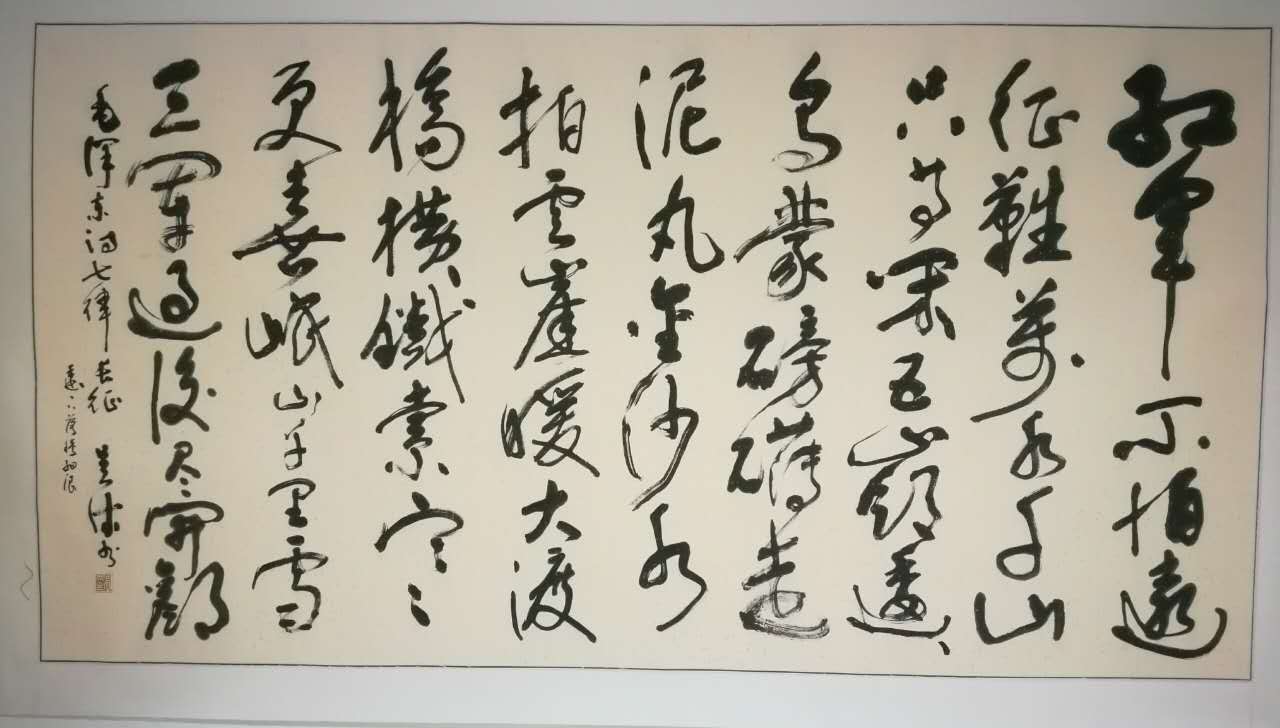 紅軍不怕遠
征難萬水千山
只等閑五嶺逶
烏蒙磅礴走
泥丸金沙水
拍雲崖暖大渡
橋橫鐵索寒
更喜岷山千里雪
三軍過後盡開顏
毛澤東詩七律長征 吳
逶下落細浪